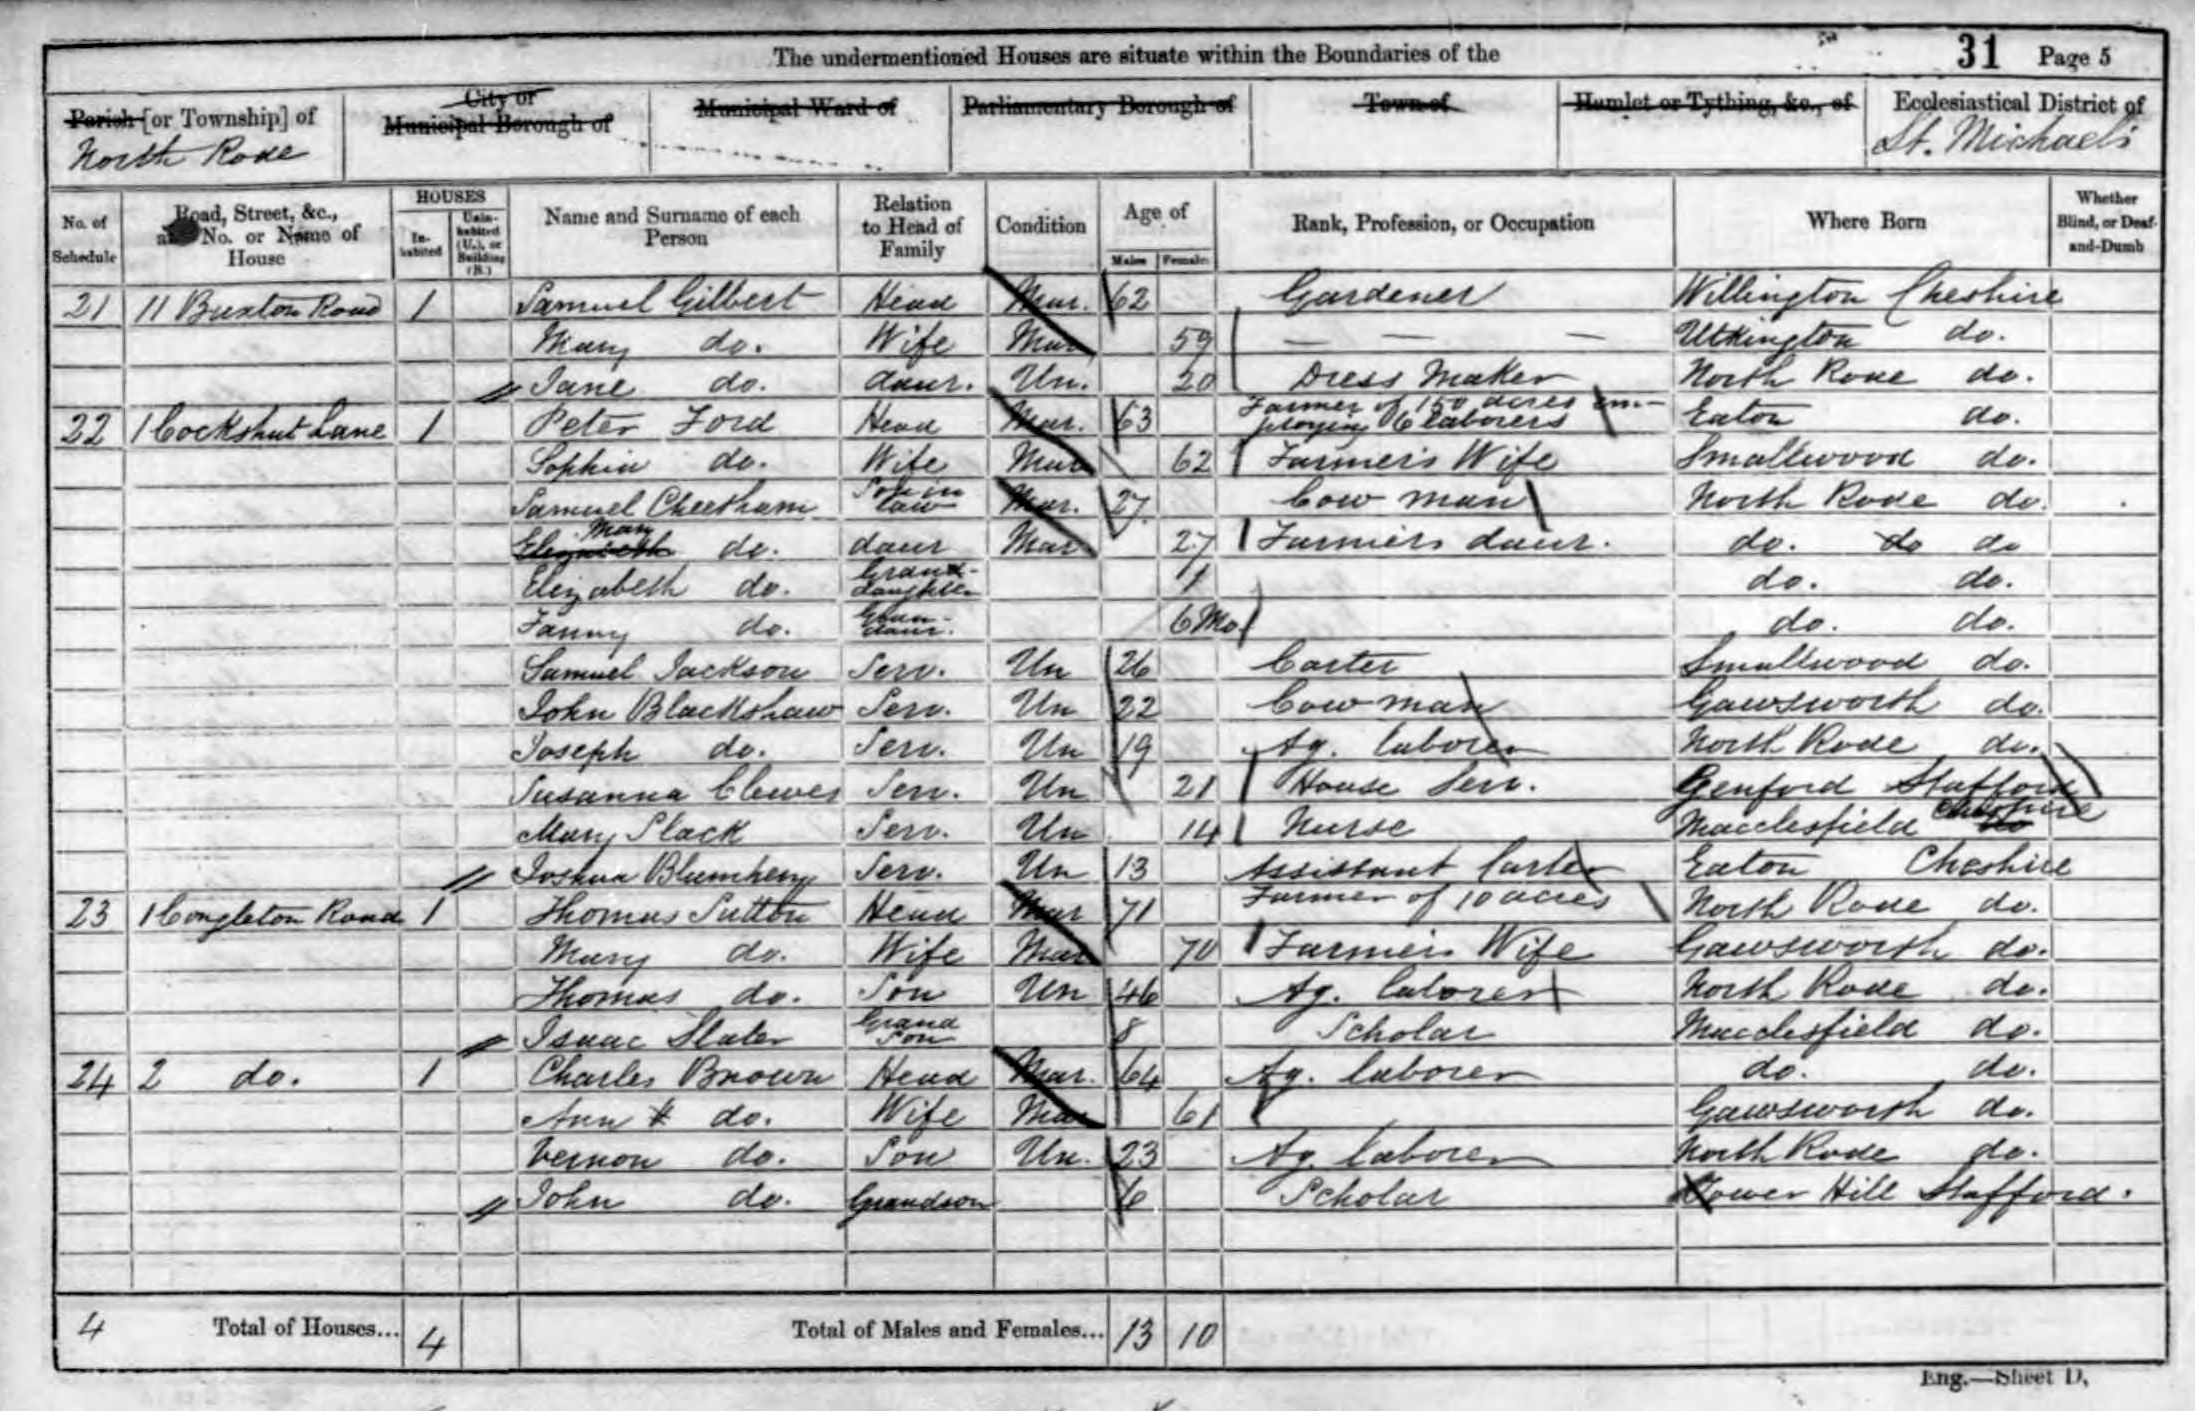 The undermentioned Houses are situate within the Boundaries of the 31 Page 5
Parish [or Township] of City or Municipal Borough of Municipal Ward of Parliamentary Borough of Town of Hamlet or Tything, &c., of Ecclesiastical District of
North Rode St. Michaels
No. of Schedule Road, Street, &c., and No. or Name of House HOUSES Inhabited Uninhabited (U.), or Building (B.) Name and Surname of each Person Relation to Head of Family Condition Age of Males Females Rank, Profession, or Occupation Where Born Whether Blind, or Deaf-and-Dumb
21 11 Buxton Road 1 Samuel Gilbert Head Mar. 62 Gardener Willington Cheshire
Mary do. Wife Mar 59 — — — Utkington do.
Jane do. daur. Un. 20 Dress Maker North Rode do.
22 1 Cockshut Lane 1 Peter Ford Head Mar. 63 Farmer of 150 acres em-ploying 6 laborers Eaton do.
Sophia do. Wife Mar 62 Farmer's Wife Smallwood do.
Samuel Cheetham Son in law Mar. 27 Cow man North Rode do.
Elizabeth Mary do. daur Mar 27 Farmers daur. do. do do
Elizabeth do. Grand-daughter 1 do. do.
Fanny do. Gran-daur. 6 Mo do. do.
Samuel Jackson Serv. Un 26 Carter Smallwood do.
John Blackshaw Serv. Un 22 Cow man Gawsworth do.
Joseph do. Serv. Un 19 Ag. laborer North Rode do.
Susanna Clewes Serv. Un 21 House Serv. Genford Stafford
Mary Slack Serv. Un 14 Nurse Macclesfield Cheshire
Joshua Serv. Un 13 Assistant Carter Eaton Cheshire
23 1 Congleton Road 1 Thomas Sutton Head Mar 71 Farmer of 10 acres North Rode do.
Mary do. Wife Mar 70 Farmers Wife Gawsworth do.
Thomas do. Son Un 46 Ag. laborer North Rode do.
Isaac Slater Grand Son 8 Scholar Macclesfield do.
24 2 do. 1 Charles Brown Head Mar. 64 Ag. laborer do. do.
Ann do. Wife Mar 61 Gawsworth do.
Vernon do. Son Un. 23 Ag. laborer North Rode do.
John do. Grandson 6 Scholar Tower Hill Stafford.
4 Total of Houses... 4 Total of Males and Females... 13 10
Eng.—Sheet D.